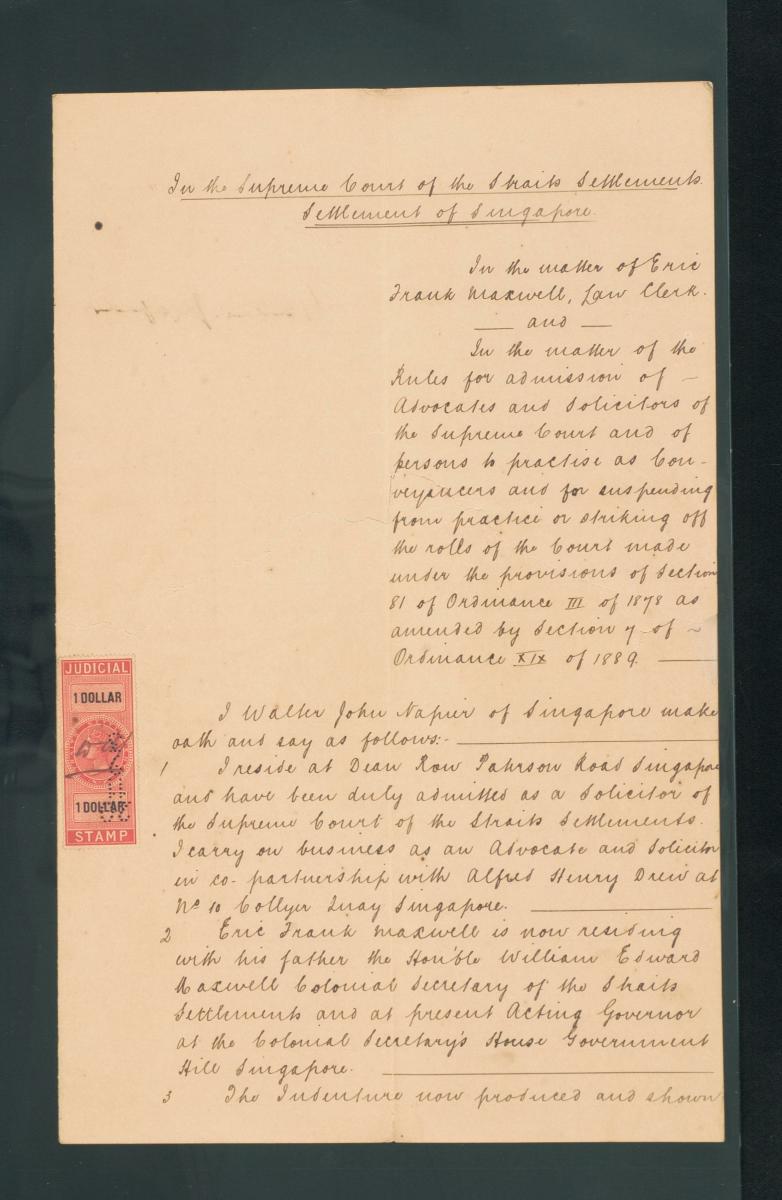 In the Supreme Court of the Straits Settlements.
Settlement of Singapore.
In the matter of Eric
Frank Maxwell, Law Clerk.
— and —
In the matter of the
Rules for admission of —
Advocates and Solicitors of
the Supreme Court and of
persons to practise as Con-
veyancers and for suspending
from practice or striking off
the rolls of the Court made
under the provisions of Section
81 of Ordinance III of 1878 as
amended by Section 7 of ~
Ordinance XIX of 1889. —
JUDICIAL
1 DOLLAR
1 DOLLAR
STAMP
I Walter John Napier of Singapore make
oath and say as follows:-
1 I reside at Dean Row Paterson Road Singapore
and have been duly admitted as a Solicitor of
the Supreme Court of the Straits Settlements.
I carry on business as an Advocate and Solicitor
in co-partnership with Alfred Henry Drew at
No 10 Collyer Quay Singapore.
2 Eric Frank Maxwell is now residing
with his father the Hon'ble William Edward
Maxwell Colonial Secretary of the Straits
Settlements and at present Acting Governor
at the Colonial Secretary's House Government
Hill Singapore.
3 The Indenture now produced and shown